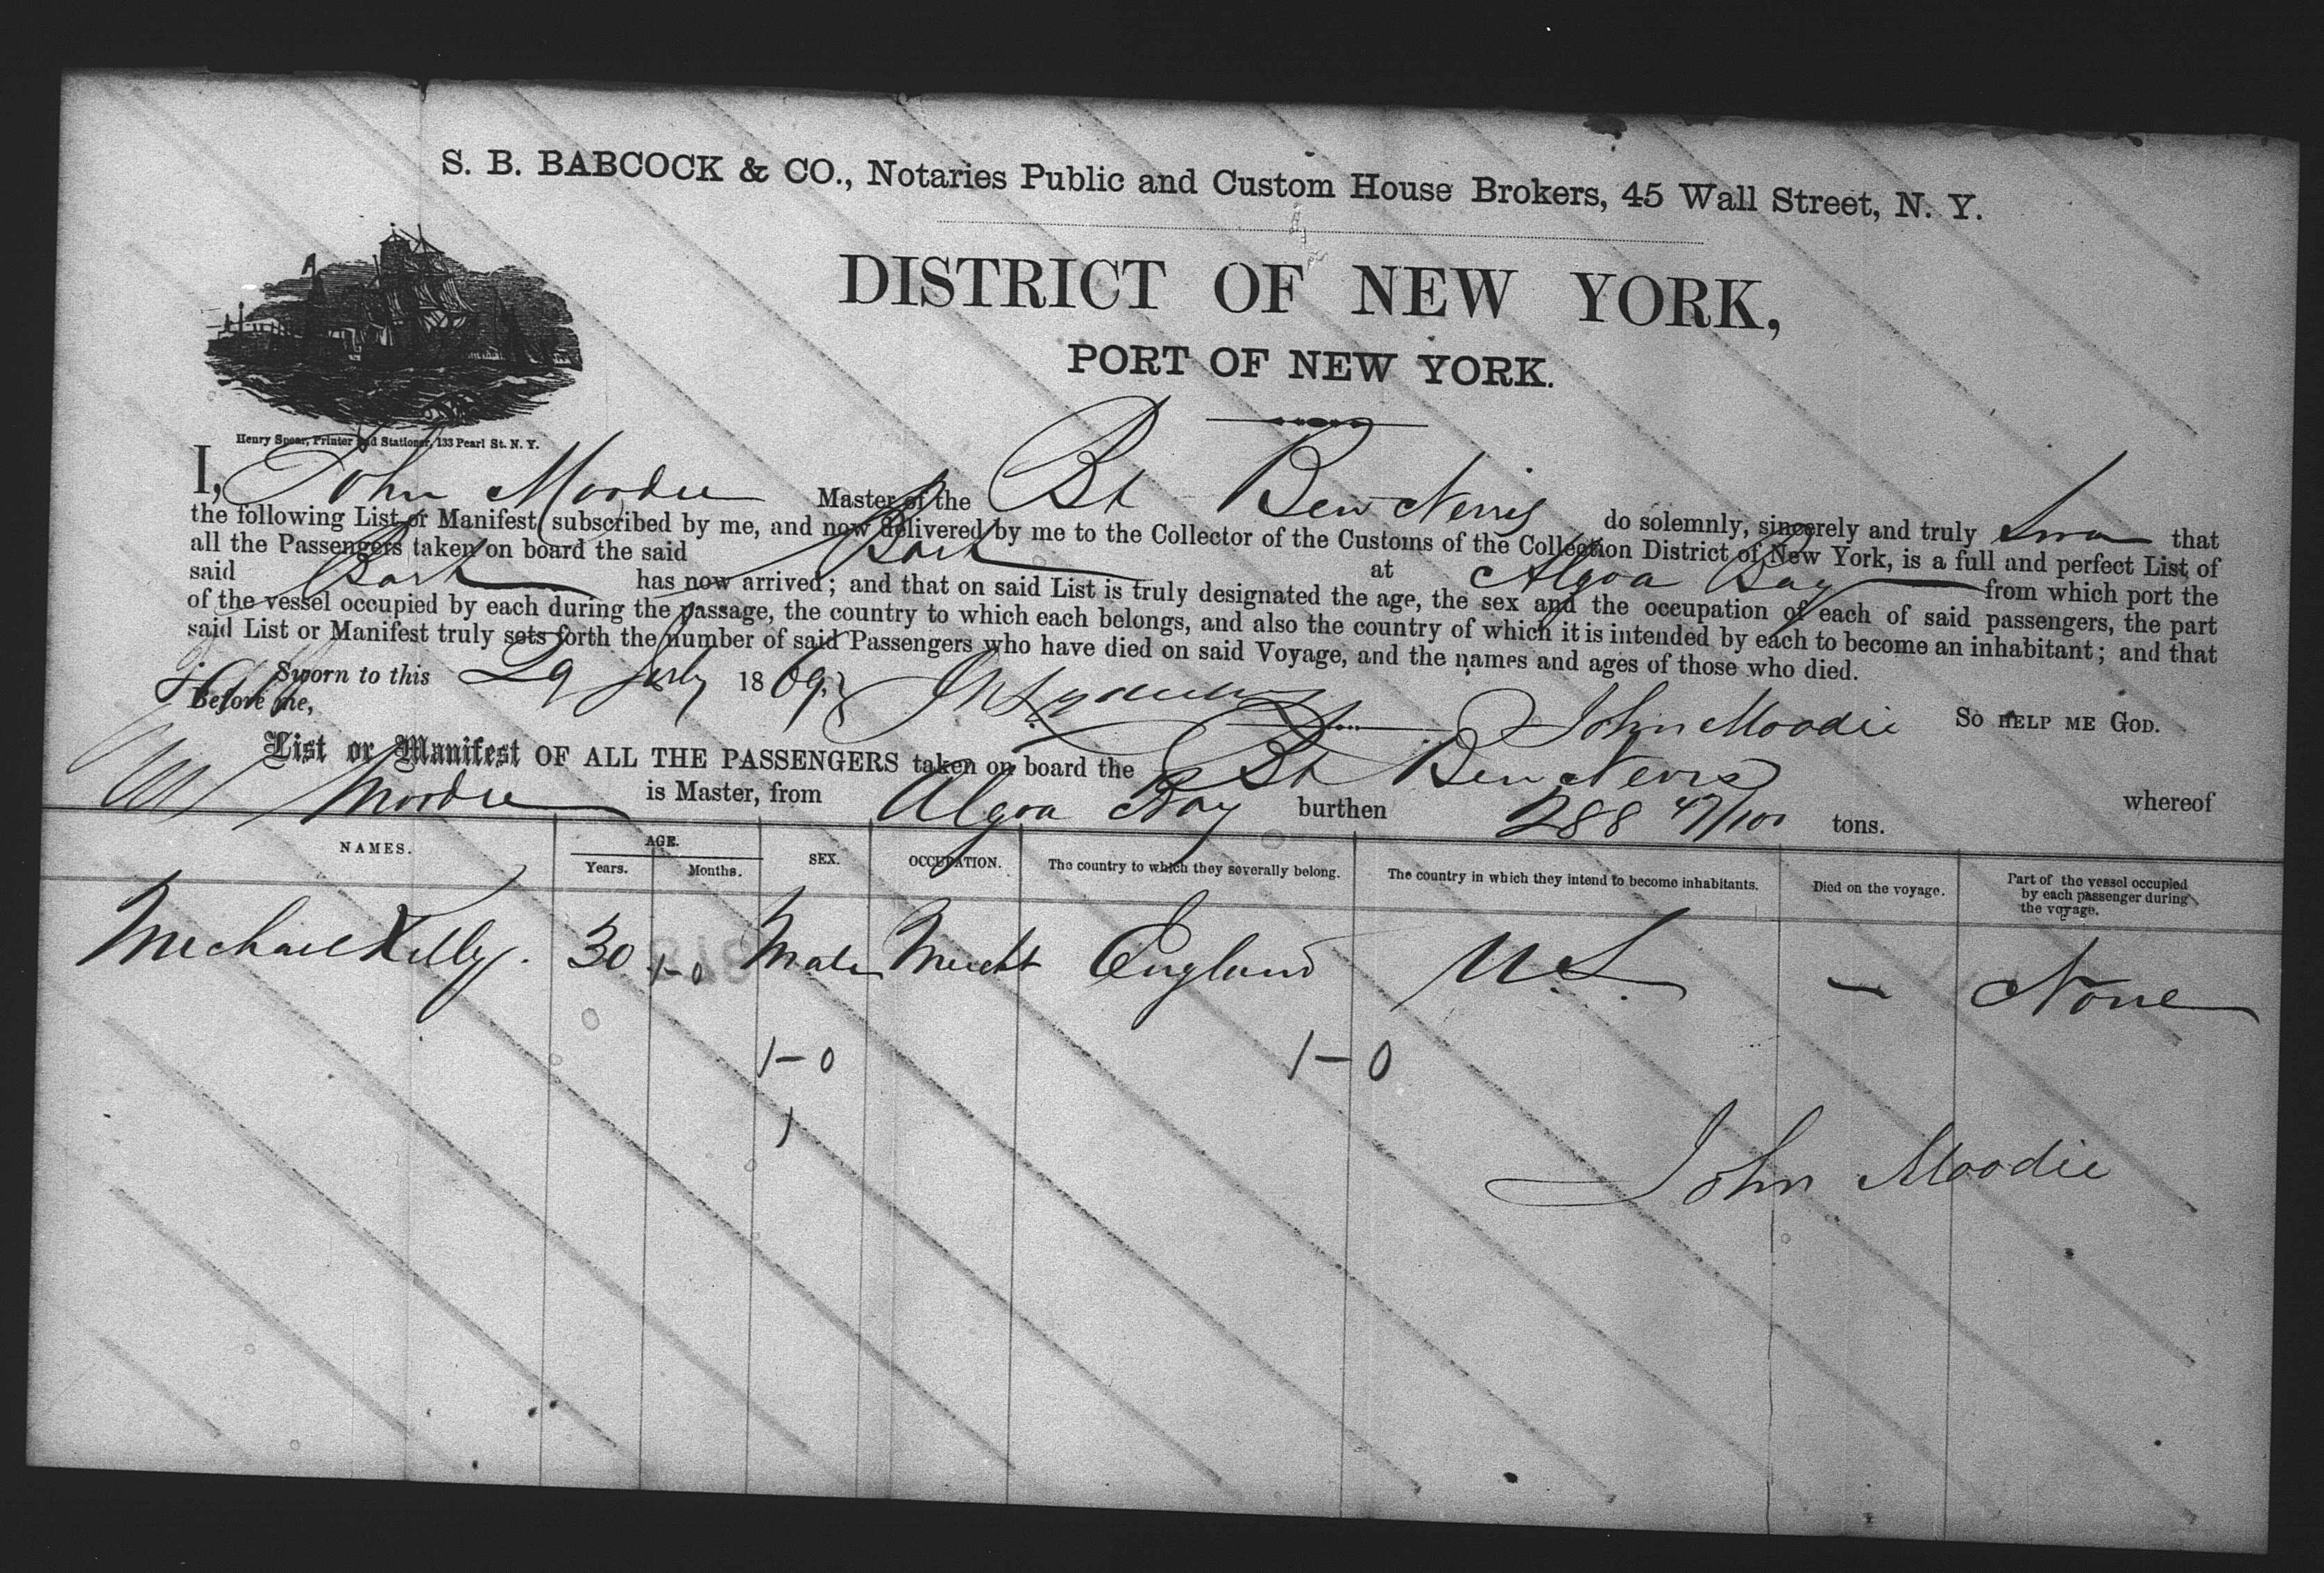 S. B. BABCOCK & CO., Notaries Public and Custom House Brokers, 45 Wall Street, N. Y.
DISTRICT OF NEW YORK,
PORT OF NEW YORK.
Henry Spear, Printer and Stationer, 133 Pearl St. N. Y.
I, John Moodie Master of the Bk Ben Nevis do solemnly, sincerely and truly Swear that
the following List or Manifest, subscribed by me, and now delivered by me to the Collector of the Customs of the Collection District of New York, is a full and perfect List of
all the Passengers taken on board the said Bark at Algoa Bay from which port the
said Bark has now arrived; and that on said List is truly designated the age, the sex and the occupation of each of said passengers, the part
of the vessel occupied by each during the passage, the country to which each belongs, and also the country of which it is intended by each to become an inhabitant; and that
said List or Manifest truly sets forth the number of said Passengers who have died on said Voyage, and the names and ages of those who died.
Sworn to this 29 July 1869. John Moodie SO HELP ME GOD.
Before me,
List or Manifest OF ALL THE PASSENGERS taken on board the Bk Ben Nevis whereof
Moodie is Master, from Algoa Bay burthen 288 47/100 tons.
NAMES. AGE. Years. Months. SEX. OCCUPATION. The country to which they severally belong. The country in which they intend to become inhabitants. Died on the voyage. Part of the vessel occupied by each passenger during the voyage.
Michael Kelly. 30 1-0 Male Mercht England U.S. — None
1-0 1-0
1
John Moodie